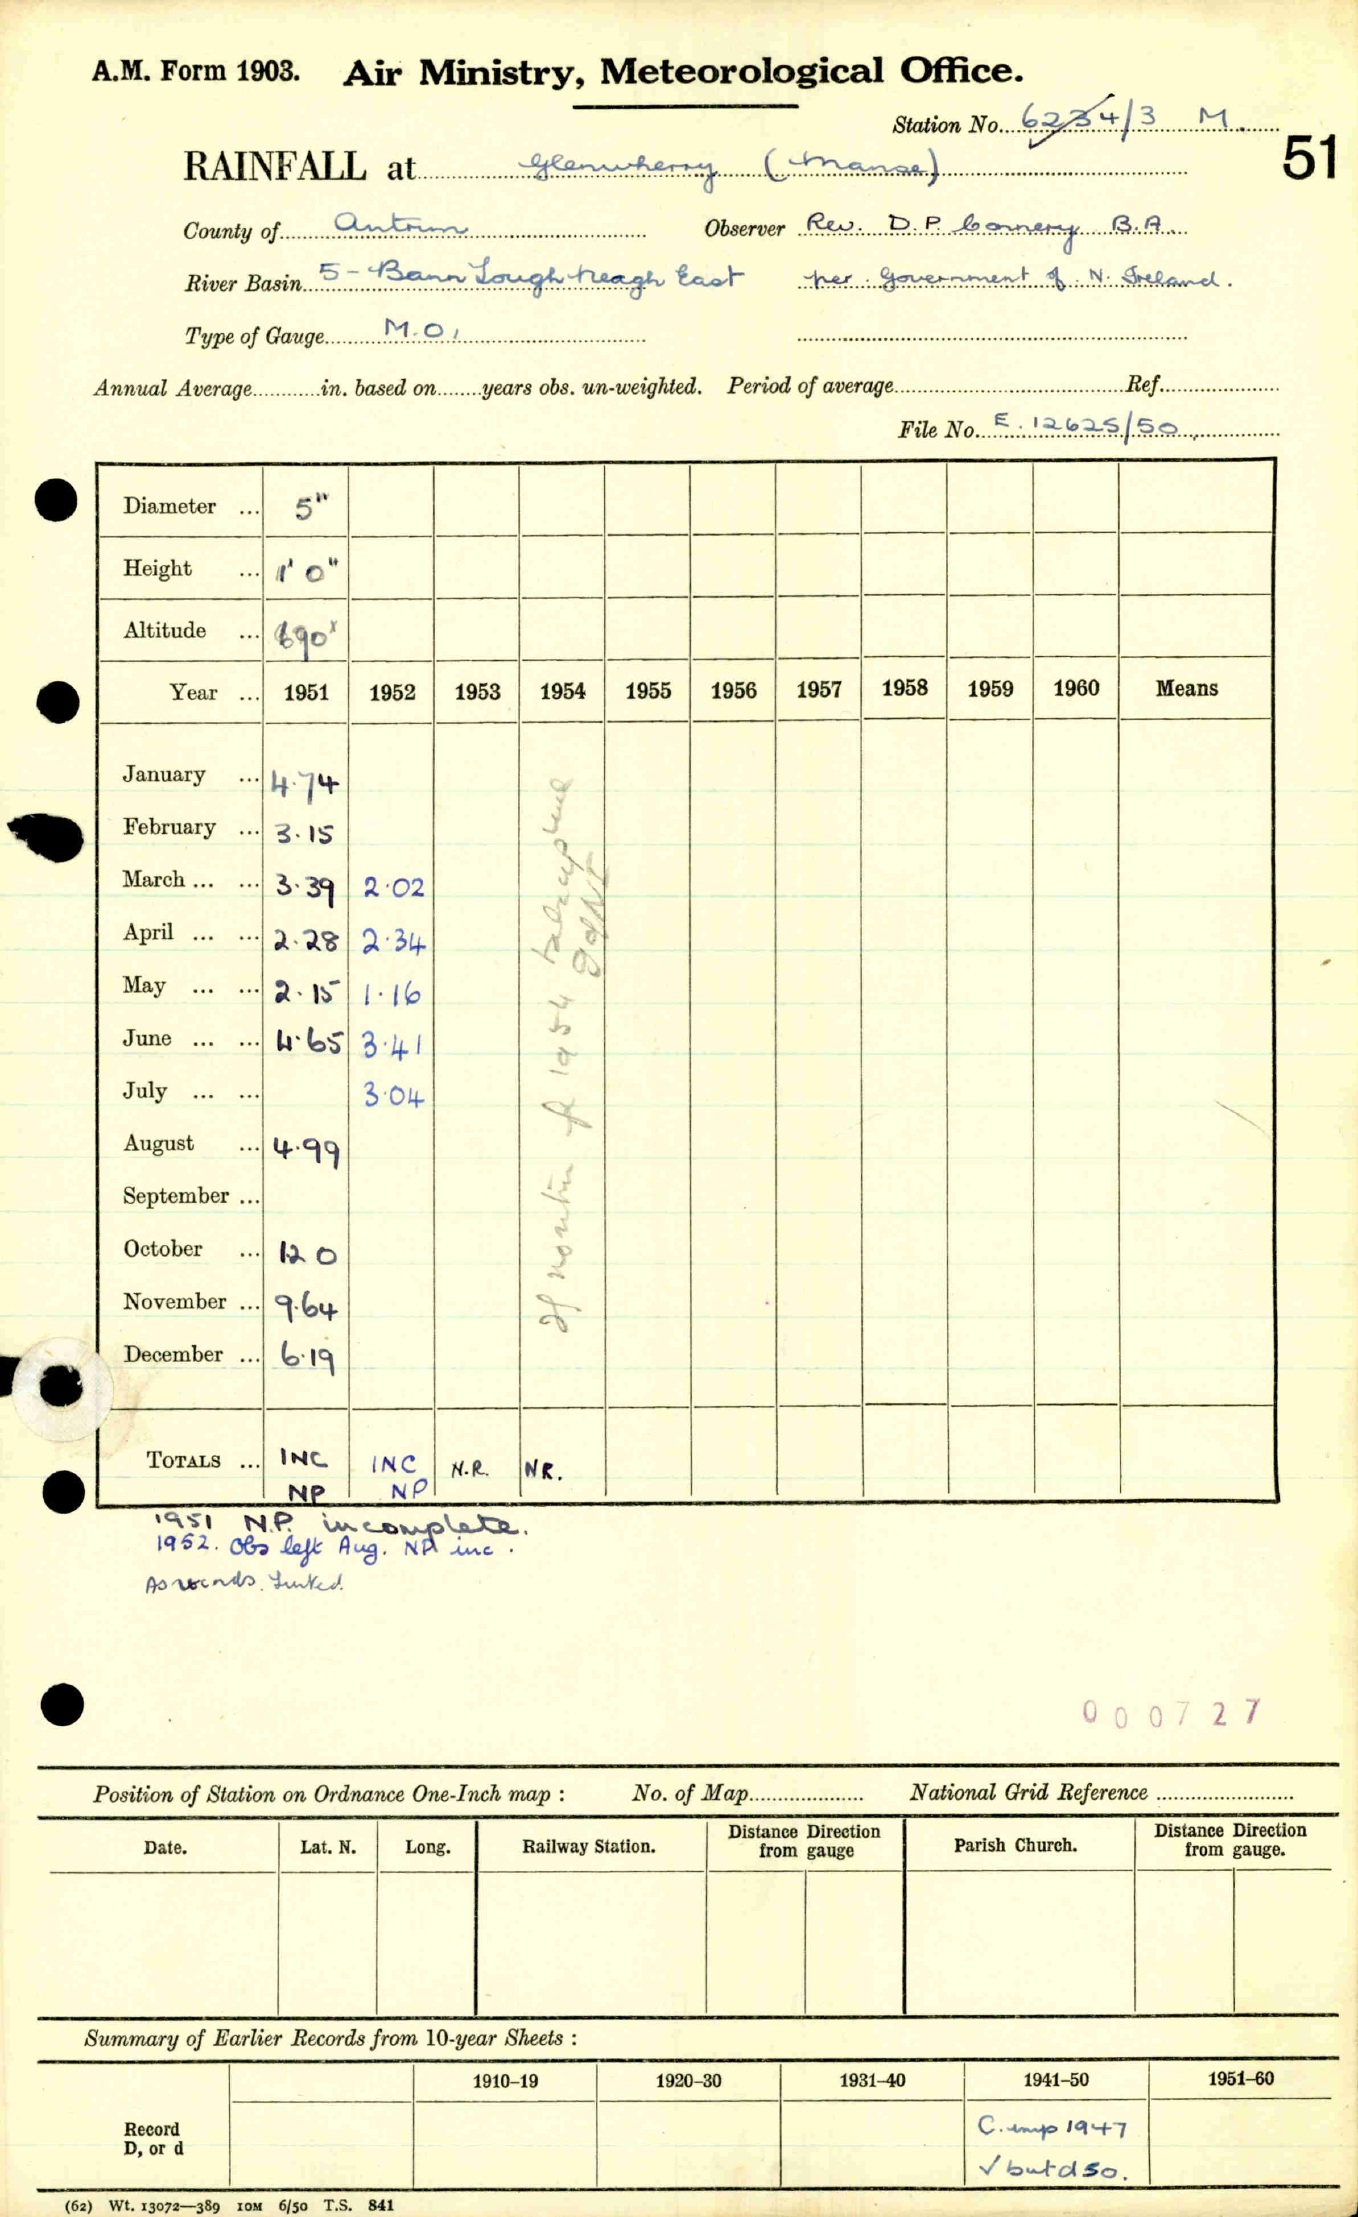 A.M. Form 1903. Air Ministry, Meteorological Office.
Station No. 6234/3 M.
51
RAINFALL at Glenwherry (Manse)
County of Antrim Observer Rev. D.P. Connery B.A.
River Basin 5 - Bann Lough Neagh East per Government of N. Ireland.
Type of Gauge M.O.
Annual Average in. based on years obs. un-weighted. Period of average Ref.
File No. E.12625/50
Diameter ... 5"
Height ... 1' 0"
Altitude ... 690'
Year ... 1951 1952 1953 1954 1955 1956 1957 1958 1959 1960 Means
January ... 4.74
February ... 3.15
March ... ... 3.39 2.02
April ... ... 2.28 2.34
May ... ... 2.15 1.16
June ... ... 4.65 3.41
July ... ... 3.04
August ... 4.99
September ...
October ... 1.20
November ... 9.64
December ... 6.19
If nothing for 1954 take up
TOTALS ... INC INC N.R. NR.
NP NP
1951 N.P. incomplete.
1952. Obs left Aug. NP inc.
As records
000727
Position of Station on Ordnance One-Inch map : No. of Map National Grid Reference
Date. Lat. N. Long. Railway Station. Distance from Direction gauge Parish Church. Distance from Direction gauge.
Summary of Earlier Records from 10-year Sheets :
1910–19 1920–30 1931–40 1941–50 1951–60
Record C. 1947
D, or d ✓ but d 50.
(62) Wt. 13072—389 10M 6/50 T.S. 841